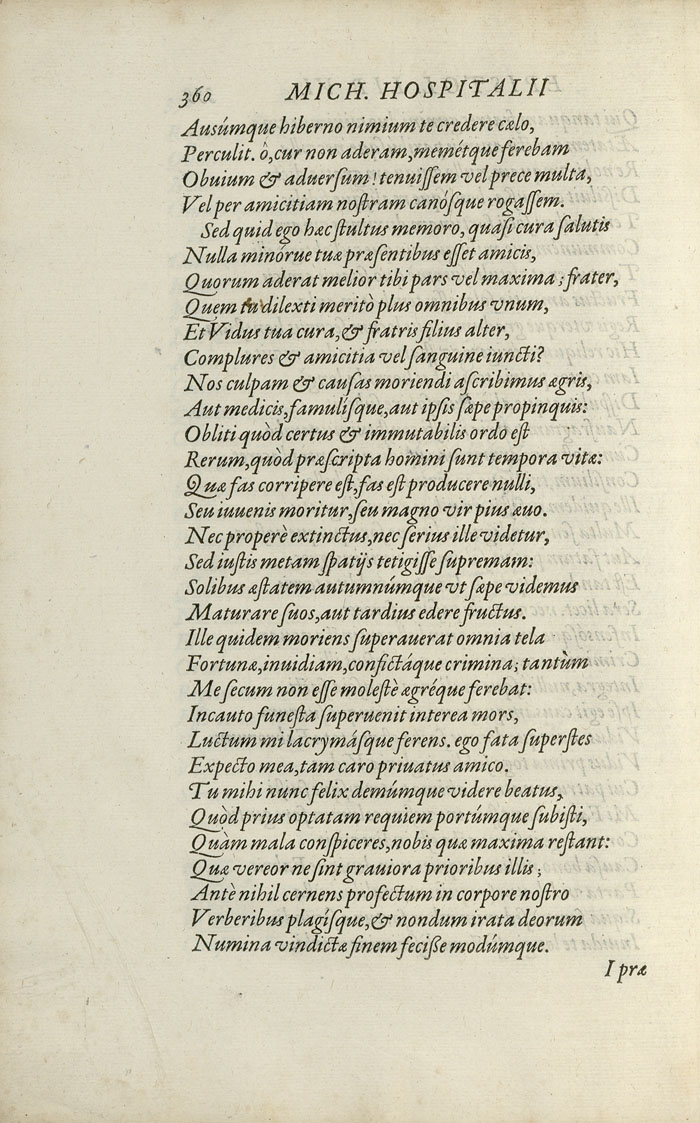 360 MICH. HOSPITALII
Ausúmque hiberno nimium te credere cælo,
Perculit. ô, cur non aderam, memétque ferebam
Obuium & aduersum! tenuissem vel prece multa,
Vel per amicitiam nostram canósque rogassem.
Sed quid ego hæc stultus memoro, quasi cura salutis
Nulla minórue tuæ præsentibus esset amicis,
Quorum aderat melior tibi pars vel maxima; frater,
Quem tu dilexti meritò plus omnibus vnum,
Et Vidus tua cura, & fratris filius alter,
Complures & amicitia vel sanguine iuncti?
Nos culpam & causas moriendi ascribimus ægris,
Aut medicis, famulísque, aut ipsis sæpe propinquis:
Obliti quòd certus & immutabilis ordo est
Rerum, quòd præscripta homini sunt tempora vitæ:
Quæ fas corripere est, fas est producere nulli,
Seu iuuenis moritur, seu magno vir pius æuo.
Nec properè extinctus, nec serius ille videtur,
Sed iustis metam spatijs tetigisse supremam:
Solibus æstatem autumnúmque vt sæpe videmus
Maturare suos, aut tardius edere fructus.
Ille quidem moriens superauerat omnia tela
Fortunæ, inuidiam, confictáque crimina; tantùm
Me secum non esse molestè ægréque ferebat:
Incauto funesta superuenit interea mors,
Luctum mi lacrymásque ferens. ego fata superstes
Expecto mea, tam caro priuatus amico.
Tu mihi nunc felix demúmque videre beatus,
Quòd prius optatam requiem portúmque subisti,
Quàm mala conspiceres, nobis quæ maxima restant:
Quæ vereor ne sint grauiora prioribus illis;
Antè nihil cernens profectum in corpore nostro
Verberibus plagísque, & nondum irata deorum
Numina vindictæ finem fecisse modúmque.
I præ